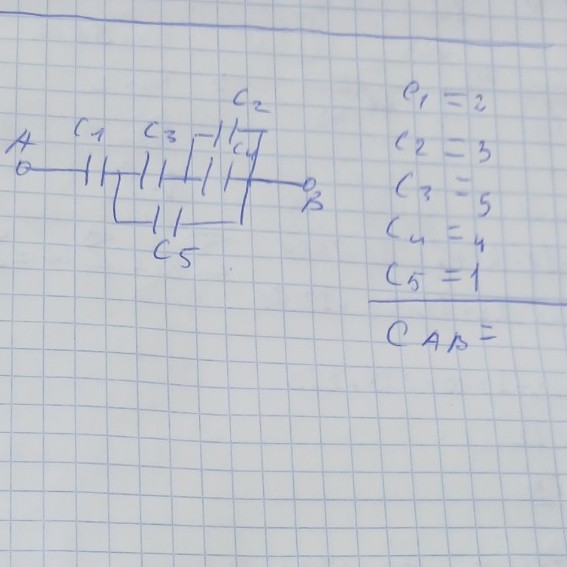 C2
C1 C3 C4
A B
C5
C1 = 2
C2 = 3
C3 = 5
C4 = 4
C5 = 1
CAB =